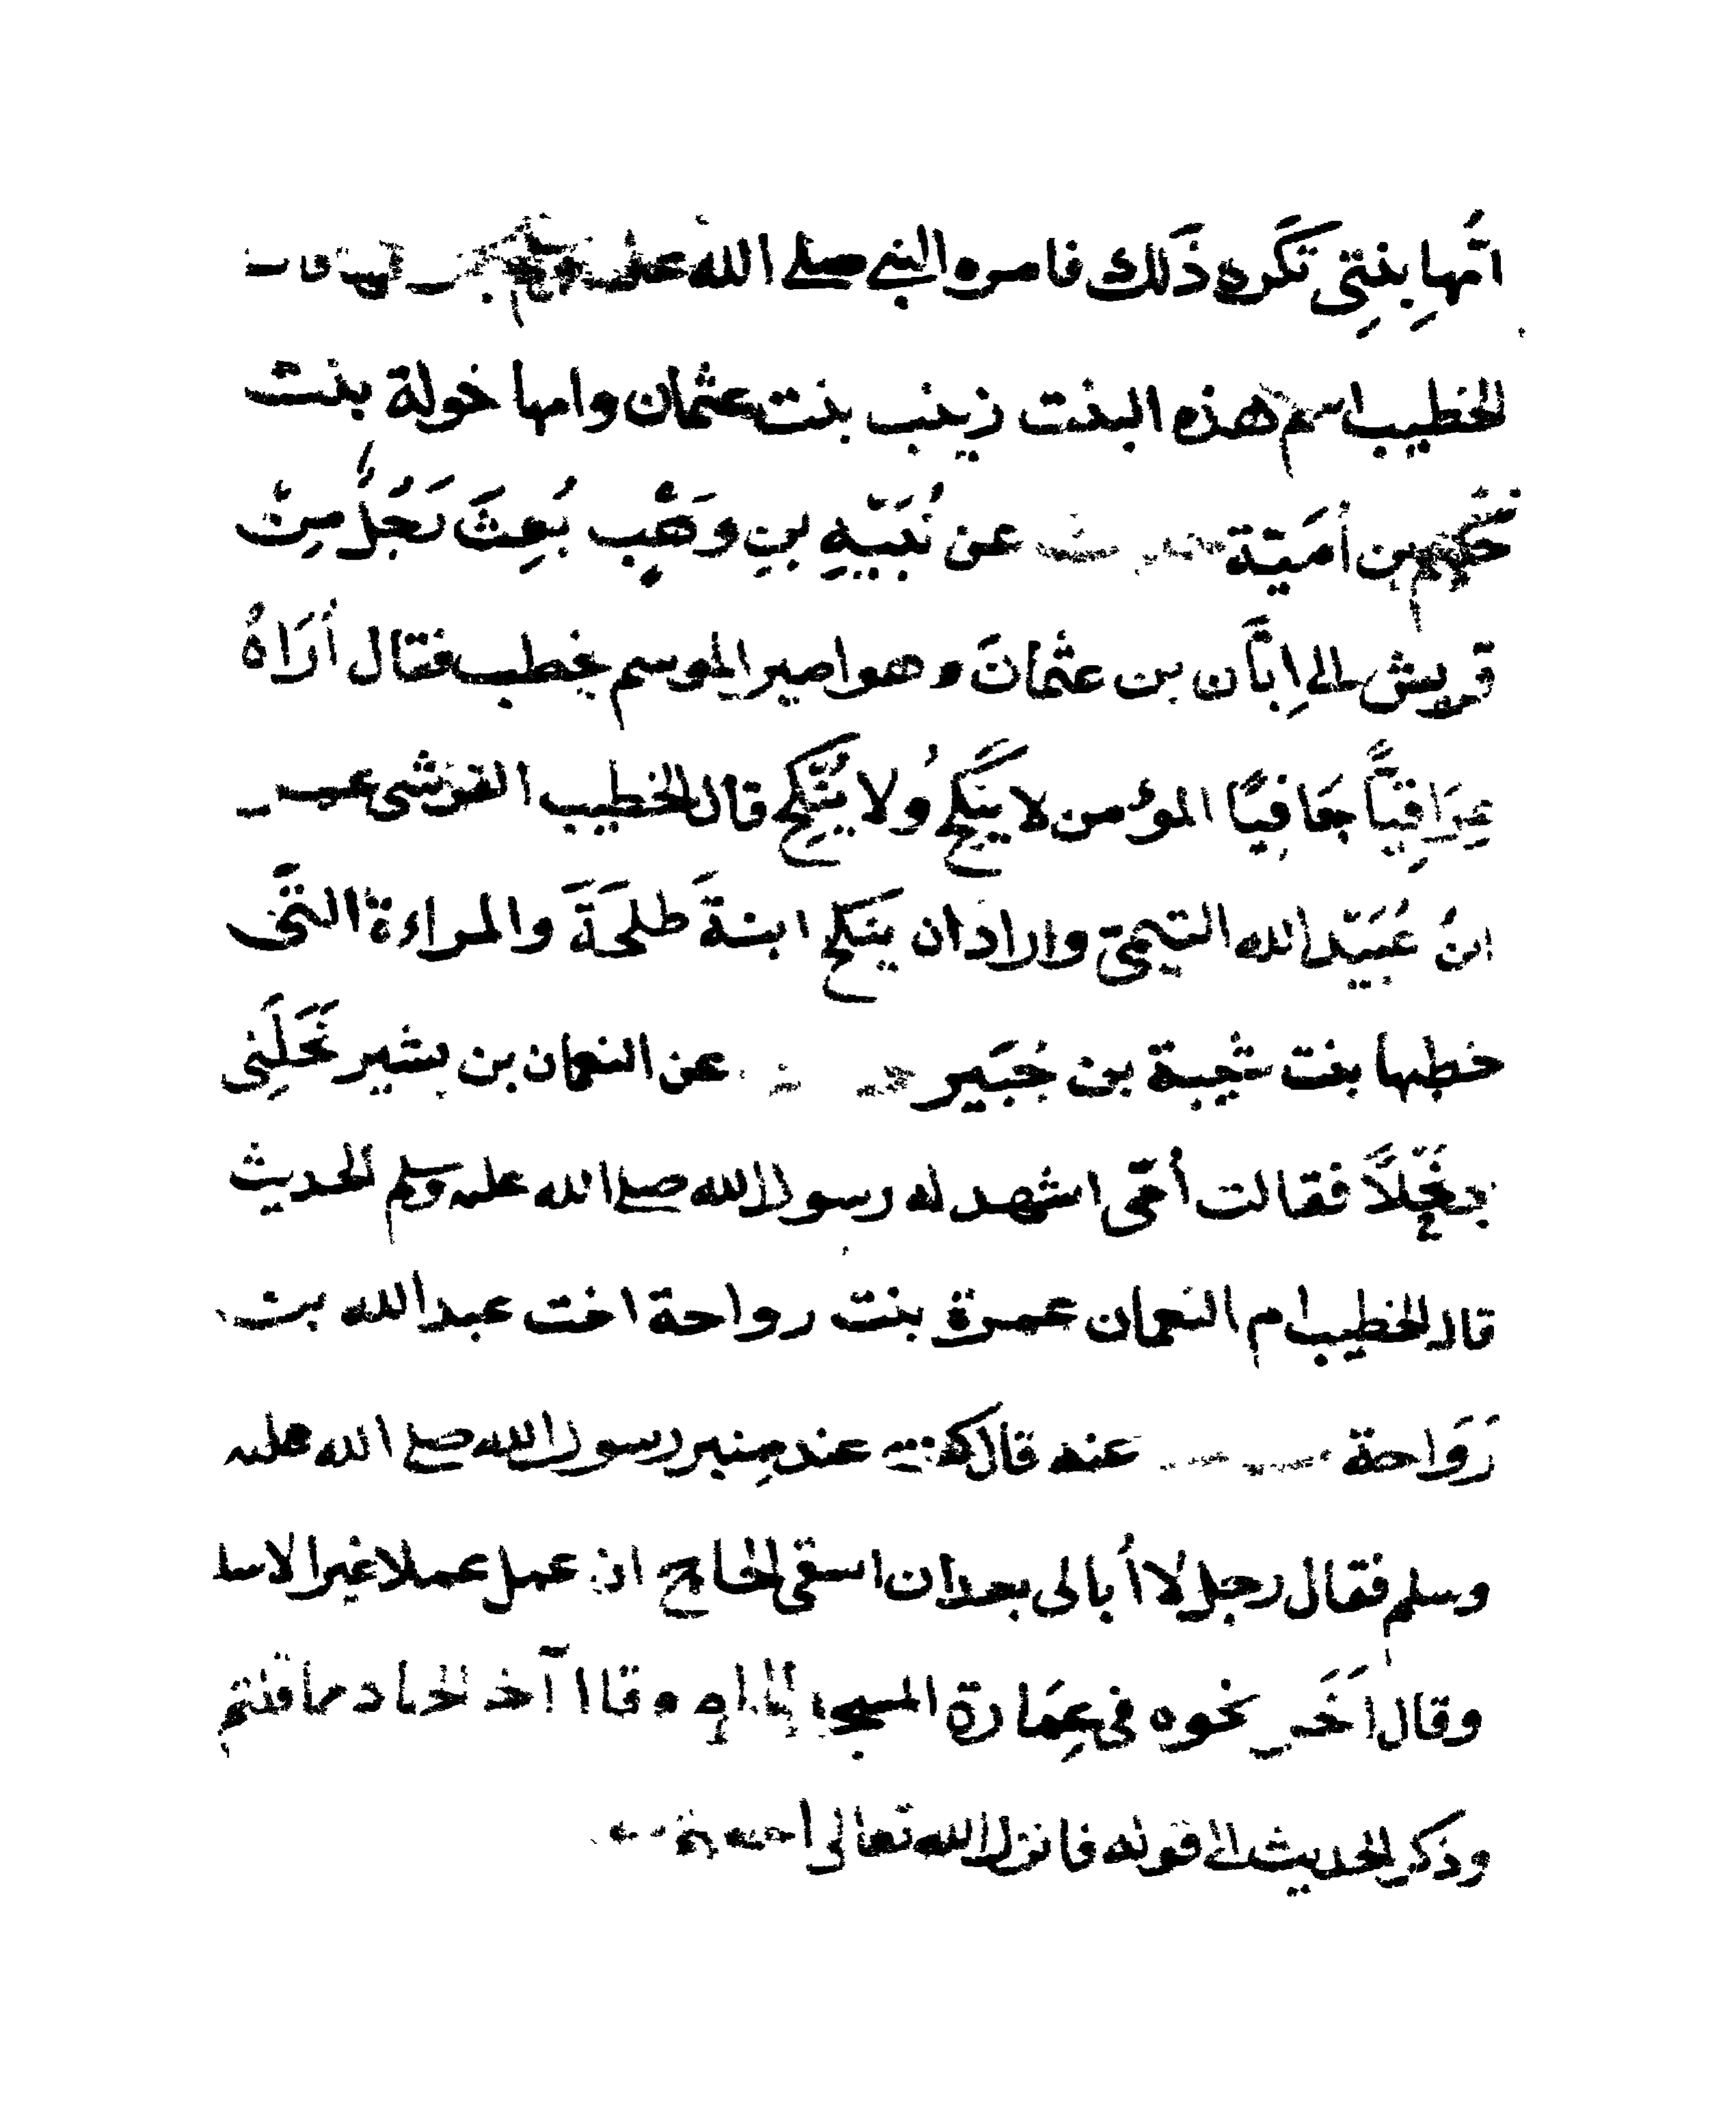 امُّهاِ بنتِي تَكَره ذَلك فامره النبي صلى الله عليه وسلم
الخطيب اسم هذه البنت زينب بنت عثمان وامها خولة بنت
حكيم بن أمَيّة عن نُبَيّهِ بنِ وَهْب بُعِثَ رَجُلٌ مِنْ
قريش الى اِبَّان بن عثمانَ وهو امير الموسم يخطب فقال أرَاهُ
عِرَاقِيًّا جَافِيًا المؤمن لا يَنَكِحُ ولا يُنَّكِح قال الخطيب القرشى عمر
ابنُ عُبَيّد الله التيمىّ واراد ان ينكح ابنةَ طلحَةَ والمراءة التَّى
خطبها بنت شيبة بن جُبَير عن النعمان بن بشير نَحَلَنِى
نِحّلاً فقالت أمّى اشهد له رسول الله صلى الله عليه وسلم الحديث
قال الخطيب ام النعمان عمرة بنت رواحة اخت عبد الله بن
رَوَاحة عنه قال كنت عند مِنبر رسول الله صلى الله عليه
وسلم فقال رجل لا أبالى بعد ان اسقى الحاج ان عمل عملا غير الاسلا
وقال اَخَر نحوه فى عِمَارة المسجد الحرام وقال آخر الجهاد مما قلتم
وذكر الحديث الى قوله فانزل الله تعالى